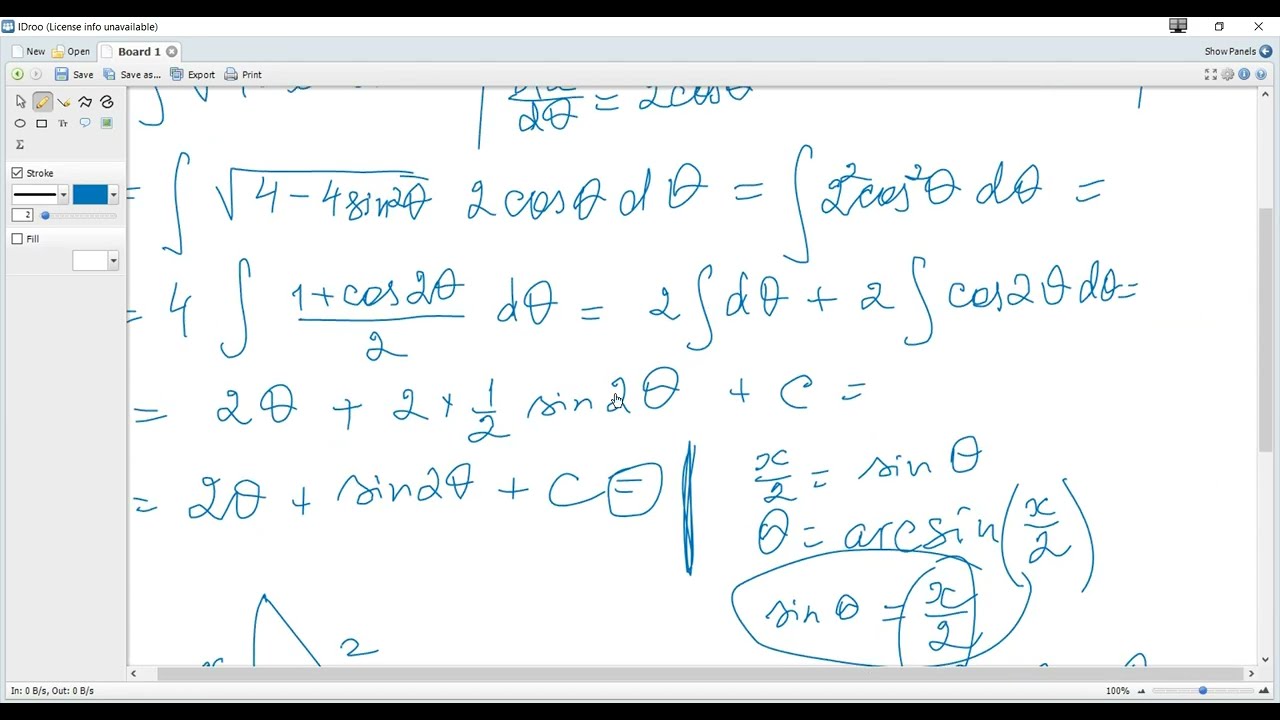 IDroo (License info unavailable)
New Open Board 1 Show Panels
Save Save as... Export Print
Tt
Σ
Stroke
2
Fill
dθ = 2cosθ
= ∫ √4 - 4sin²θ 2cosθ dθ = ∫ 2²cos²θ dθ =
= 4 ∫ 1+cos2θ / 2 dθ = 2 ∫ dθ + 2 ∫ cos2θ dθ =
= 2θ + 2 × 1/2 sin2θ + C =
= 2θ + sin2θ + C =
x/2 = sin θ
θ = arcsin(x/2)
sin θ = (x/2)
x 2 θ
In: 0 B/s, Out: 0 B/s 100%